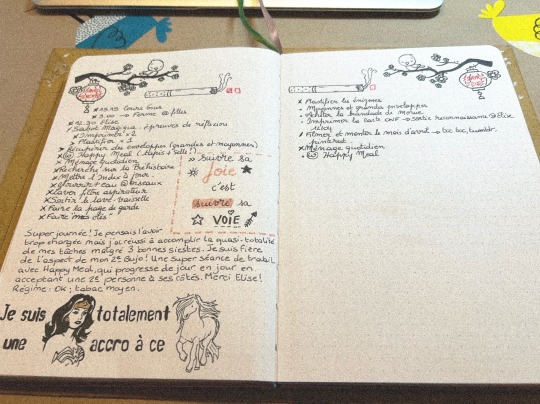 x 15.15 Cours
x 3.00 → Ferme @ filles
x 12.30 Elise
Sabot Magique : épreuves de réflexion
x Imprimer x 2
x Plastifier x 2
> Récupérer des enveloppes (grandes et moyennes)
x Happy Meal (tapis + selle!)
x Ménage quotidien
x Recherche sur la Préhistoire
x Mettre l'Index à jour
x Nourrir + eau @ oiseaux
x Laver filtre aspirateur
x Sortir le lave-vaisselle
x Faire la page de garde
x Faire "mes clés"
» Suivre sa
Joie
c'est
suivre sa
VOIE
Super journée! Je pensais l'avoir
trop chargée mais j'ai réussi à accomplir la quasi-totalité
de mes tâches malgré 3 bonnes siestes. Je suis fière
de l'aspect de mon 2e Bujo! Une super séance de travail
avec Happy Meal, qui progresse de jour en jour en
acceptant une 2e personne à ses côtés. Merci Elise!
Régime : OK ; tabac moyen.
Je suis totalement
une accro à ce
x Plastifier les énigmes
Moyennes et grandes enveloppes
Acheter la brandade de Morue
x Imprimer la carte → sortie reconnaissance
/ Filmer et monter le mois d'août → tumblr,
pinterest
x Ménage quotidien
Happy Meal